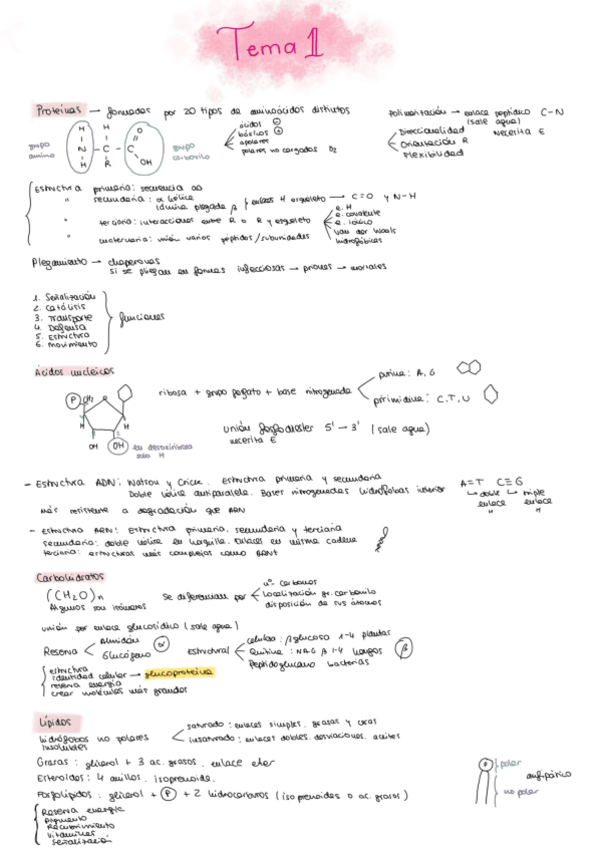 Tema 1
Proteínas → formadas por 20 tipos de aminoácidos distintos
Polimerización → enlace peptídico C-N
(sale agua)
Necesita E
Direccionalidad
Orientación R
Flexibilidad
grupo amino
H
N
H
H
C
R
O
C
OH
grupo carboxilo
ácidos ⊖
básicos ⊕
apolares
polares no cargados
Estructura primaria: secuencia aa
" secundaria: α hélice
lámina plegada β } enlaces H esqueleto → C=O y N-H
" terciaria: interacciones entre R o R y esqueleto
e. H
e. covalente
e. iónico
Van der Waals
hidrofóbicas
" cuaternaria: unión varios péptidos/subunidades
Plegamiento → chaperonas
si se pliegan en formas infecciosas → priones → mortales
1. Señalización
2. Catálisis
3. Transporte
4. Defensa
5. Estructura
6. Movimiento
funciones
Ácidos nucleicos
ribosa + grupo fosfato + base nitrogenada
purina: A, G
pirimidina: C, T, U
P
CH₂
H
H
OH
OH
en desoxirribosa
solo H
unión fosfodiester 5' - 3' (sale agua)
necesita E
- Estructura ADN: Watson y Crick. Estructura primaria y secundaria
Doble hélice antiparalela. Bases nitrogenadas hidrófobas interior
A=T C≡G
doble enlace H
triple enlace H
más resistente a degradación que ARN
- Estructura ARN: Estructura primaria, secundaria y terciaria
secundaria: doble hélice en horquilla. Enlaces en misma cadena
terciaria: estructuras más complejas como
Carbohidratos
(CH₂O)n
Algunos son isómeros
Se diferencian por
nº carbonos
localización gr. carbonilo
disposición de sus átomos
unión por enlace glucosídico (sale agua)
Reserva
Almidón
Glucógeno
α
estructural
celulosa: β glucosa 1-4 plantas
Quitina: NAG β 1-4 hongos
Peptidoglucano bacterias
β
estructura
identidad celular → glucoproteína
reserva energía
crear moléculas más grandes
Lípidos
hidrófobos no polares
insolubles
saturado: enlaces simples. grasas y ceras
insaturado: enlaces dobles. desviaciones. aceites
Grasas: glicerol + 3 ac. grasos. enlace ester
Esteroides: 4 anillos, isoprenoide.
Fosfolípidos: glicerol + P + 2 hidrocarburos (isoprenoides o ac. grasos)
polar
no polar
anfipático
Reserva energía
Pigmento
Recubrimiento
Vitaminas
Señalización